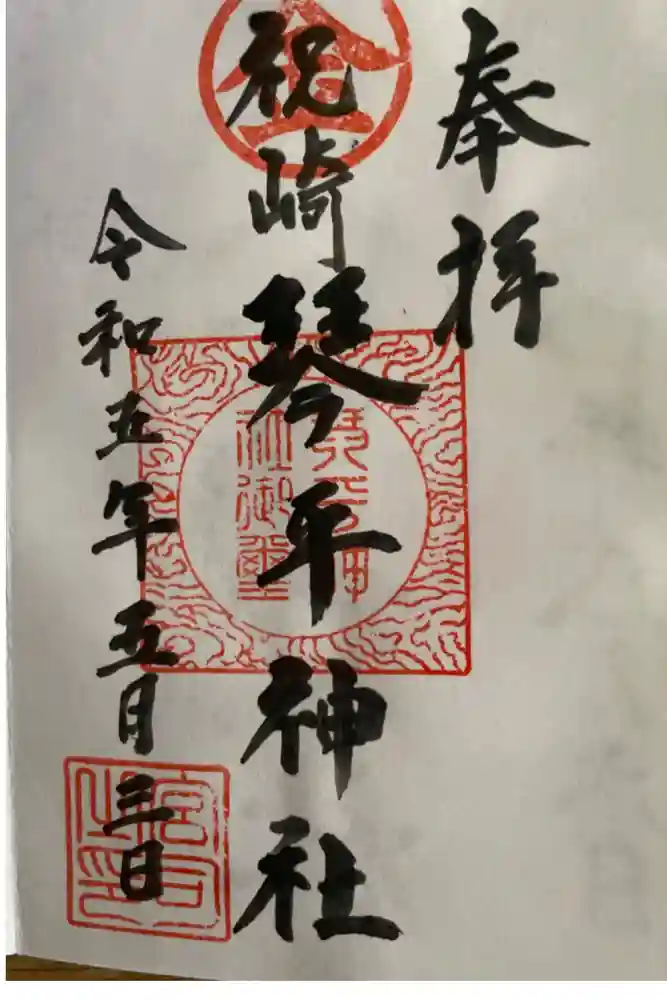 奉拝
祝崎琴平神社
令和五年五月三日
金
琴平神社御璽
宮司之印